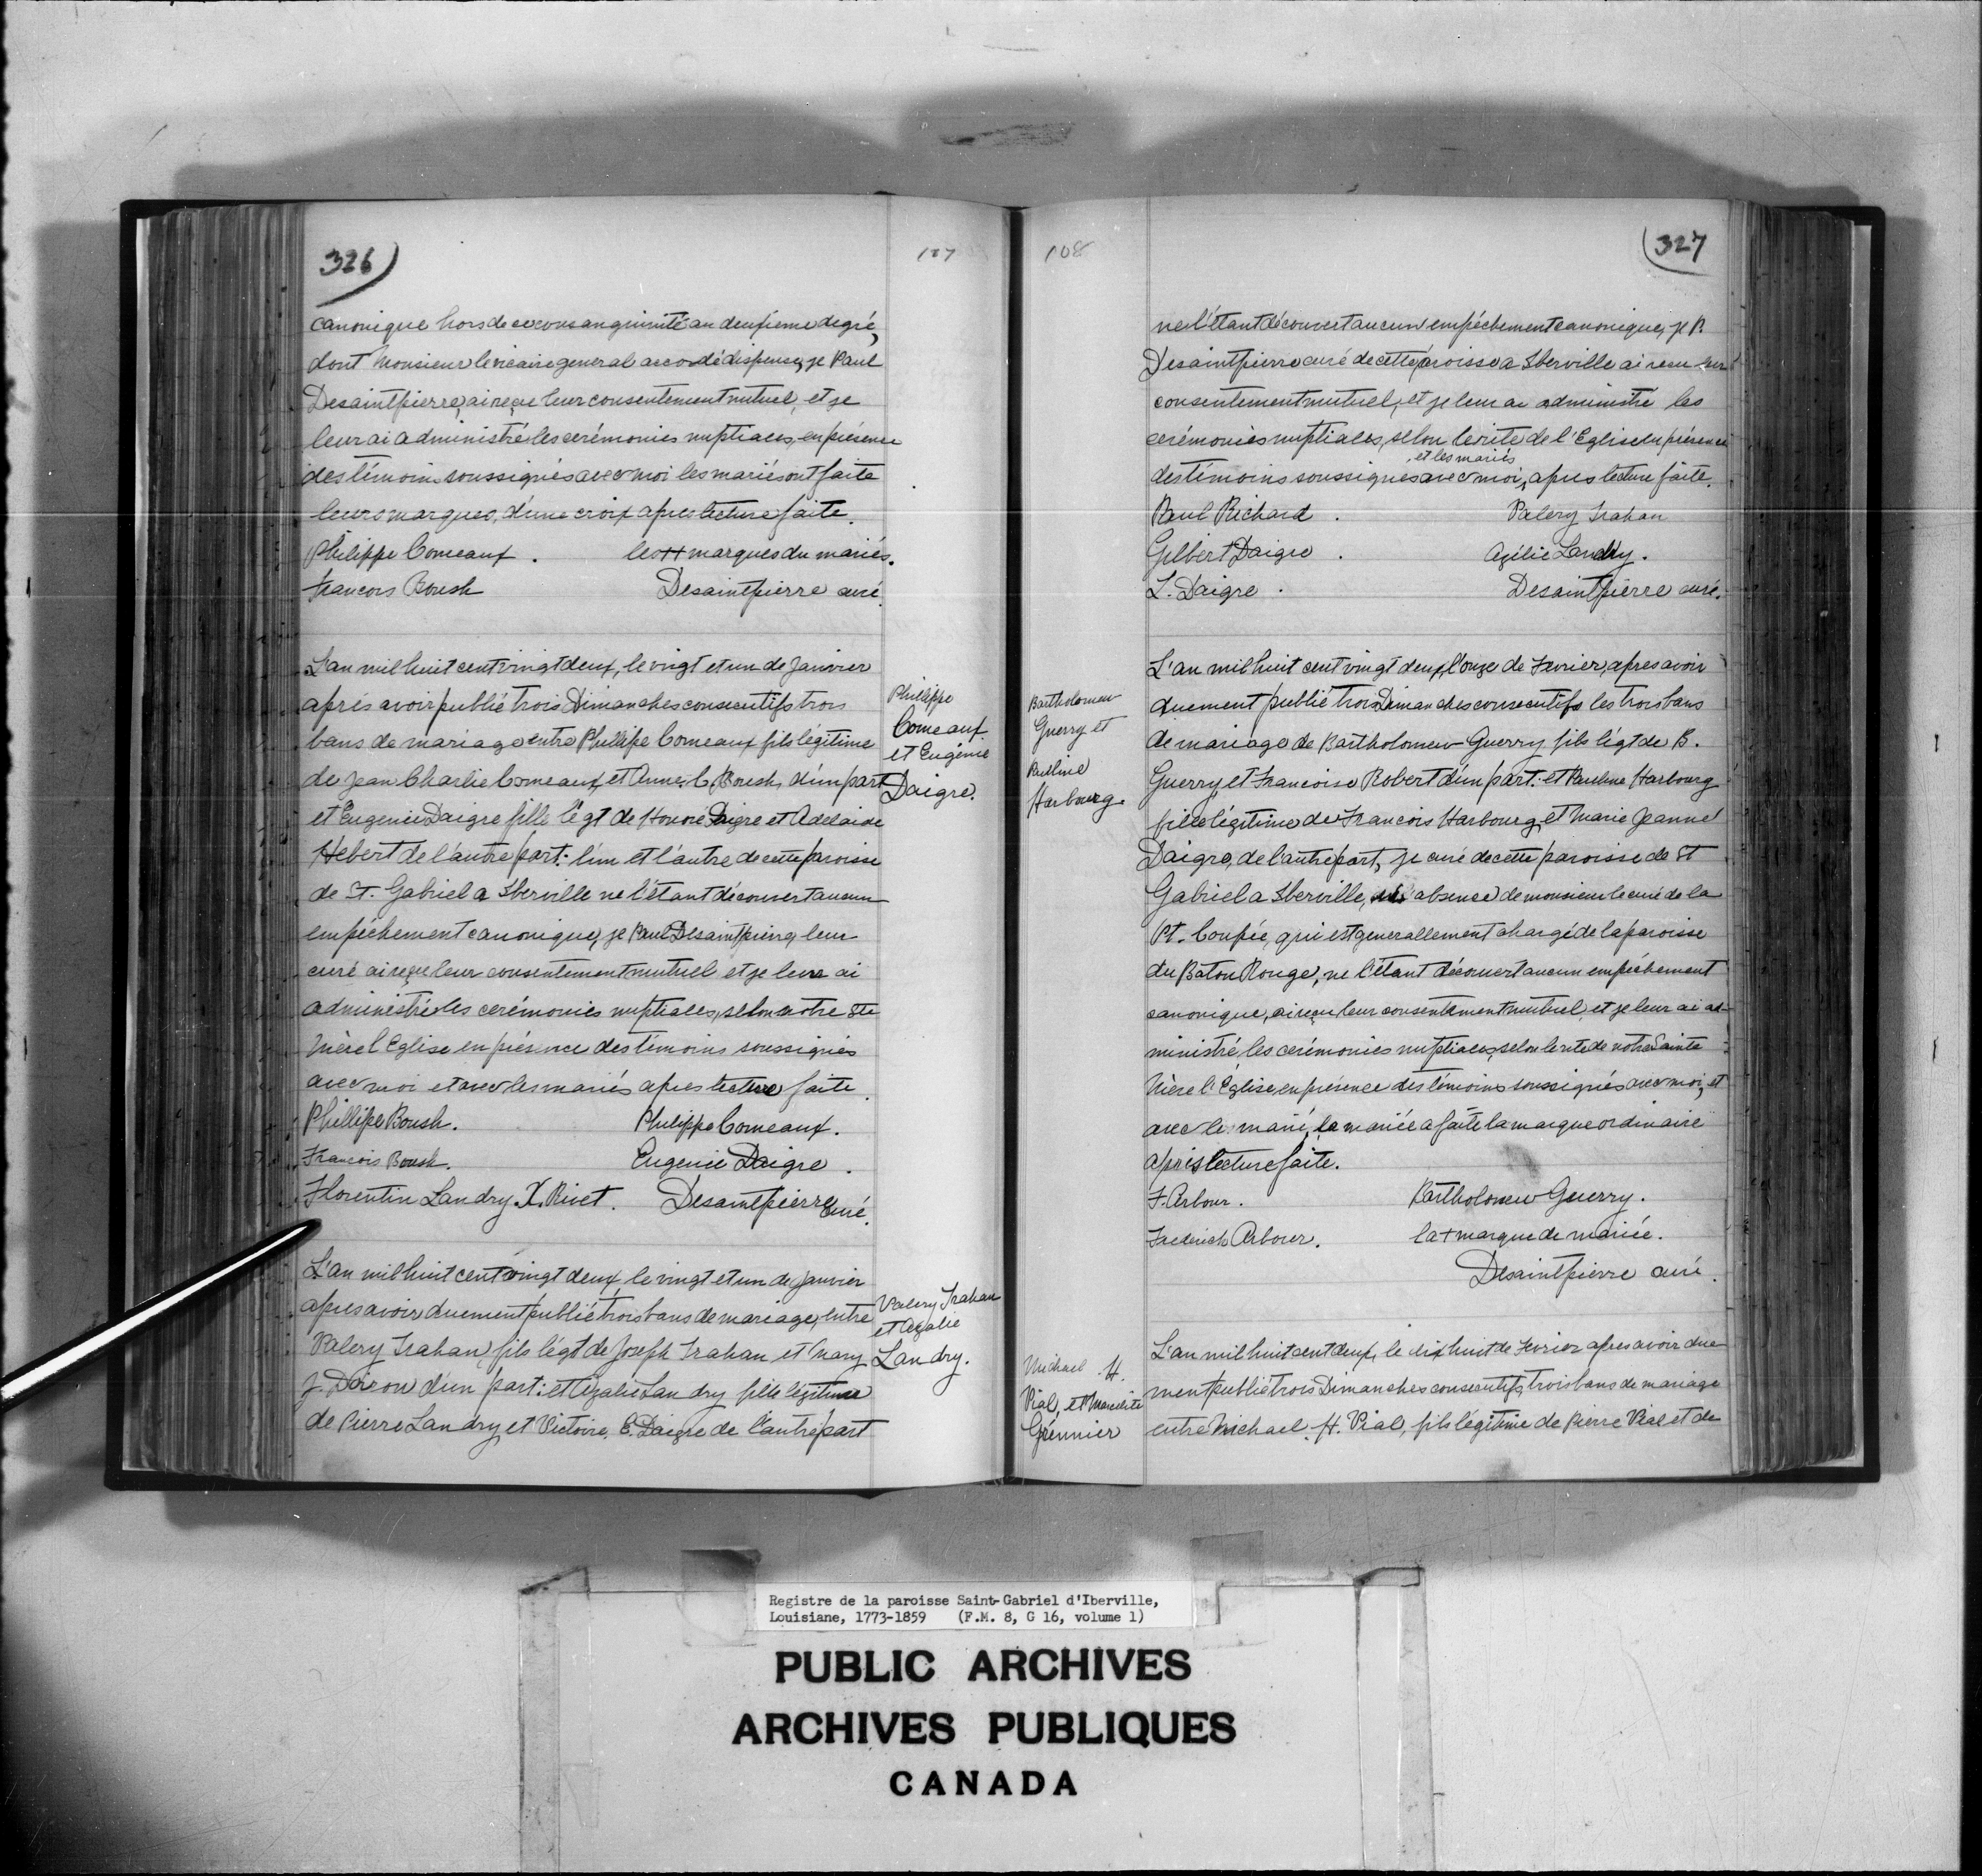 326)
107
canonique hors de ce consanguinité au deuxieme degré,
dont Monsieur le vicaire general accordé dispense, je Paul
Desaintpierre, ai reçue leur consentement mutuel, et je
leur ai administré les cerémonies nuptiales, en présence
des témoins soussignés avec moi les mariés ont faite
leurs marques, d'une croix apres lecture faite.
Philippe Comeaux. les ++ marques du mariés.
Francois Boush Desaintpierre curé.
L'an mil huit cent vingt deux, le vingt et un de Janvier
aprés avoir publié trois Dimanches consecutifs trois
bans de mariage entre Phillipe Comeaux fils légitime
de Jean Charlie Comeaux, et Anne. C. Boush, d'un part
et Eugenie Daigre fille légt de Honoré Daigre et Adelaide
Hebert de l'autre part: l'un et l'autre de cette paroisse
de St. Gabriel a Iberville ne l'étant découvert aucun
empéchement canonique, je Paul Desaintpierre, leur
curé ai reçue leur consentement mutuel et je leur ai
administré les cerémonies nuptiales, selon notre Ste
Mère l'Eglise en présence des témoins soussignés
avec moi et avec les mariés apres lecture faite.
Phillipe Boush. Philippe Comeaux.
Francois Boush. Eugenie Daigre.
Florentin Landry. X. Rivet. Desaintpierre Curé.
Philippe
Comeaux
et Eugénie
Daigre.
L'an mil huit cent vingt deux, le vingt et un de Janvier
apres avoir duement publié trois bans de mariage, entre
Valery Trahan, fils légt de Joseph Trahan et Mary
J. Doiron d'un part: et Azalie Landry fille légitime
de Pierre Landry, et Victoire. C. Daigre de l'autre part
Valery Trahan
et Azalie
Landry.
108
(327
ne l'étant découvert aucun empéchement canonique, je P.
Desaintpierre curé de cette paroisse a Iberville ai recu leur
consentement mutuel, et je leur ai administré les
cerémonies nuptiales, selon le rite de l'Eglise en présence
, et les mariés
des témoins soussignés avec moi, apres lecture faite.
Paul Richard. Valery Trahan
Gilbert Daigre. Azélie Landry.
L. Daigre. Desaintpierre curé.
L'an mil huit cent vingt deux, l'onze de Fevrier, apres avoir
duement publié trois Dimanches consecutifs les trois bans
de mariage de Bartholomew Guerry fils légt de B.
Guerry et Francoise Robert d'un part: et Pauline Harbourg
fille légitime de Francois Harbourg, et Marie Jeanne
Daigre, de l'autre part, je curé de cette paroisse de St
Gabriel a Iberville, absence de monsieur le curé de la
Pt. Coupée, qui est generallement chargé de la paroisse
du Baton Rouge, ne l'étant découvert aucun empéchement
canonique, ai reçu leur consentement mutuel, et je leur ai ad-
ministré les cerémonies nuptiales, selon le rite de notre Sainte
Mère l'Église, en présence des témoins soussignés avec moi, et
avec le marié, la mariée a faite la marque ordinaire
aprés lecture faite.
F. Arbour. Bartholomew Guerry.
Frederick Arbour. la + marque de mariée.
Desaintpierre curé.
Bartholomew
Guerry et
Pauline
Harbourg.
L'an mil huit cent deux, le dix huit de Fevrier apres avoir due
ment publié trois Dimanches consecutifs, trois bans de mariage
entre Michael. H. Vial, fils légitime de Pierre Vial et de
Michael H.
Vial, et
Grénnier
Registre de la paroisse Saint-Gabriel d'Iberville,
Louisiane, 1773-1859 (F.M. 8, G 16, volume 1)
PUBLIC ARCHIVES
ARCHIVES PUBLIQUES
CANADA